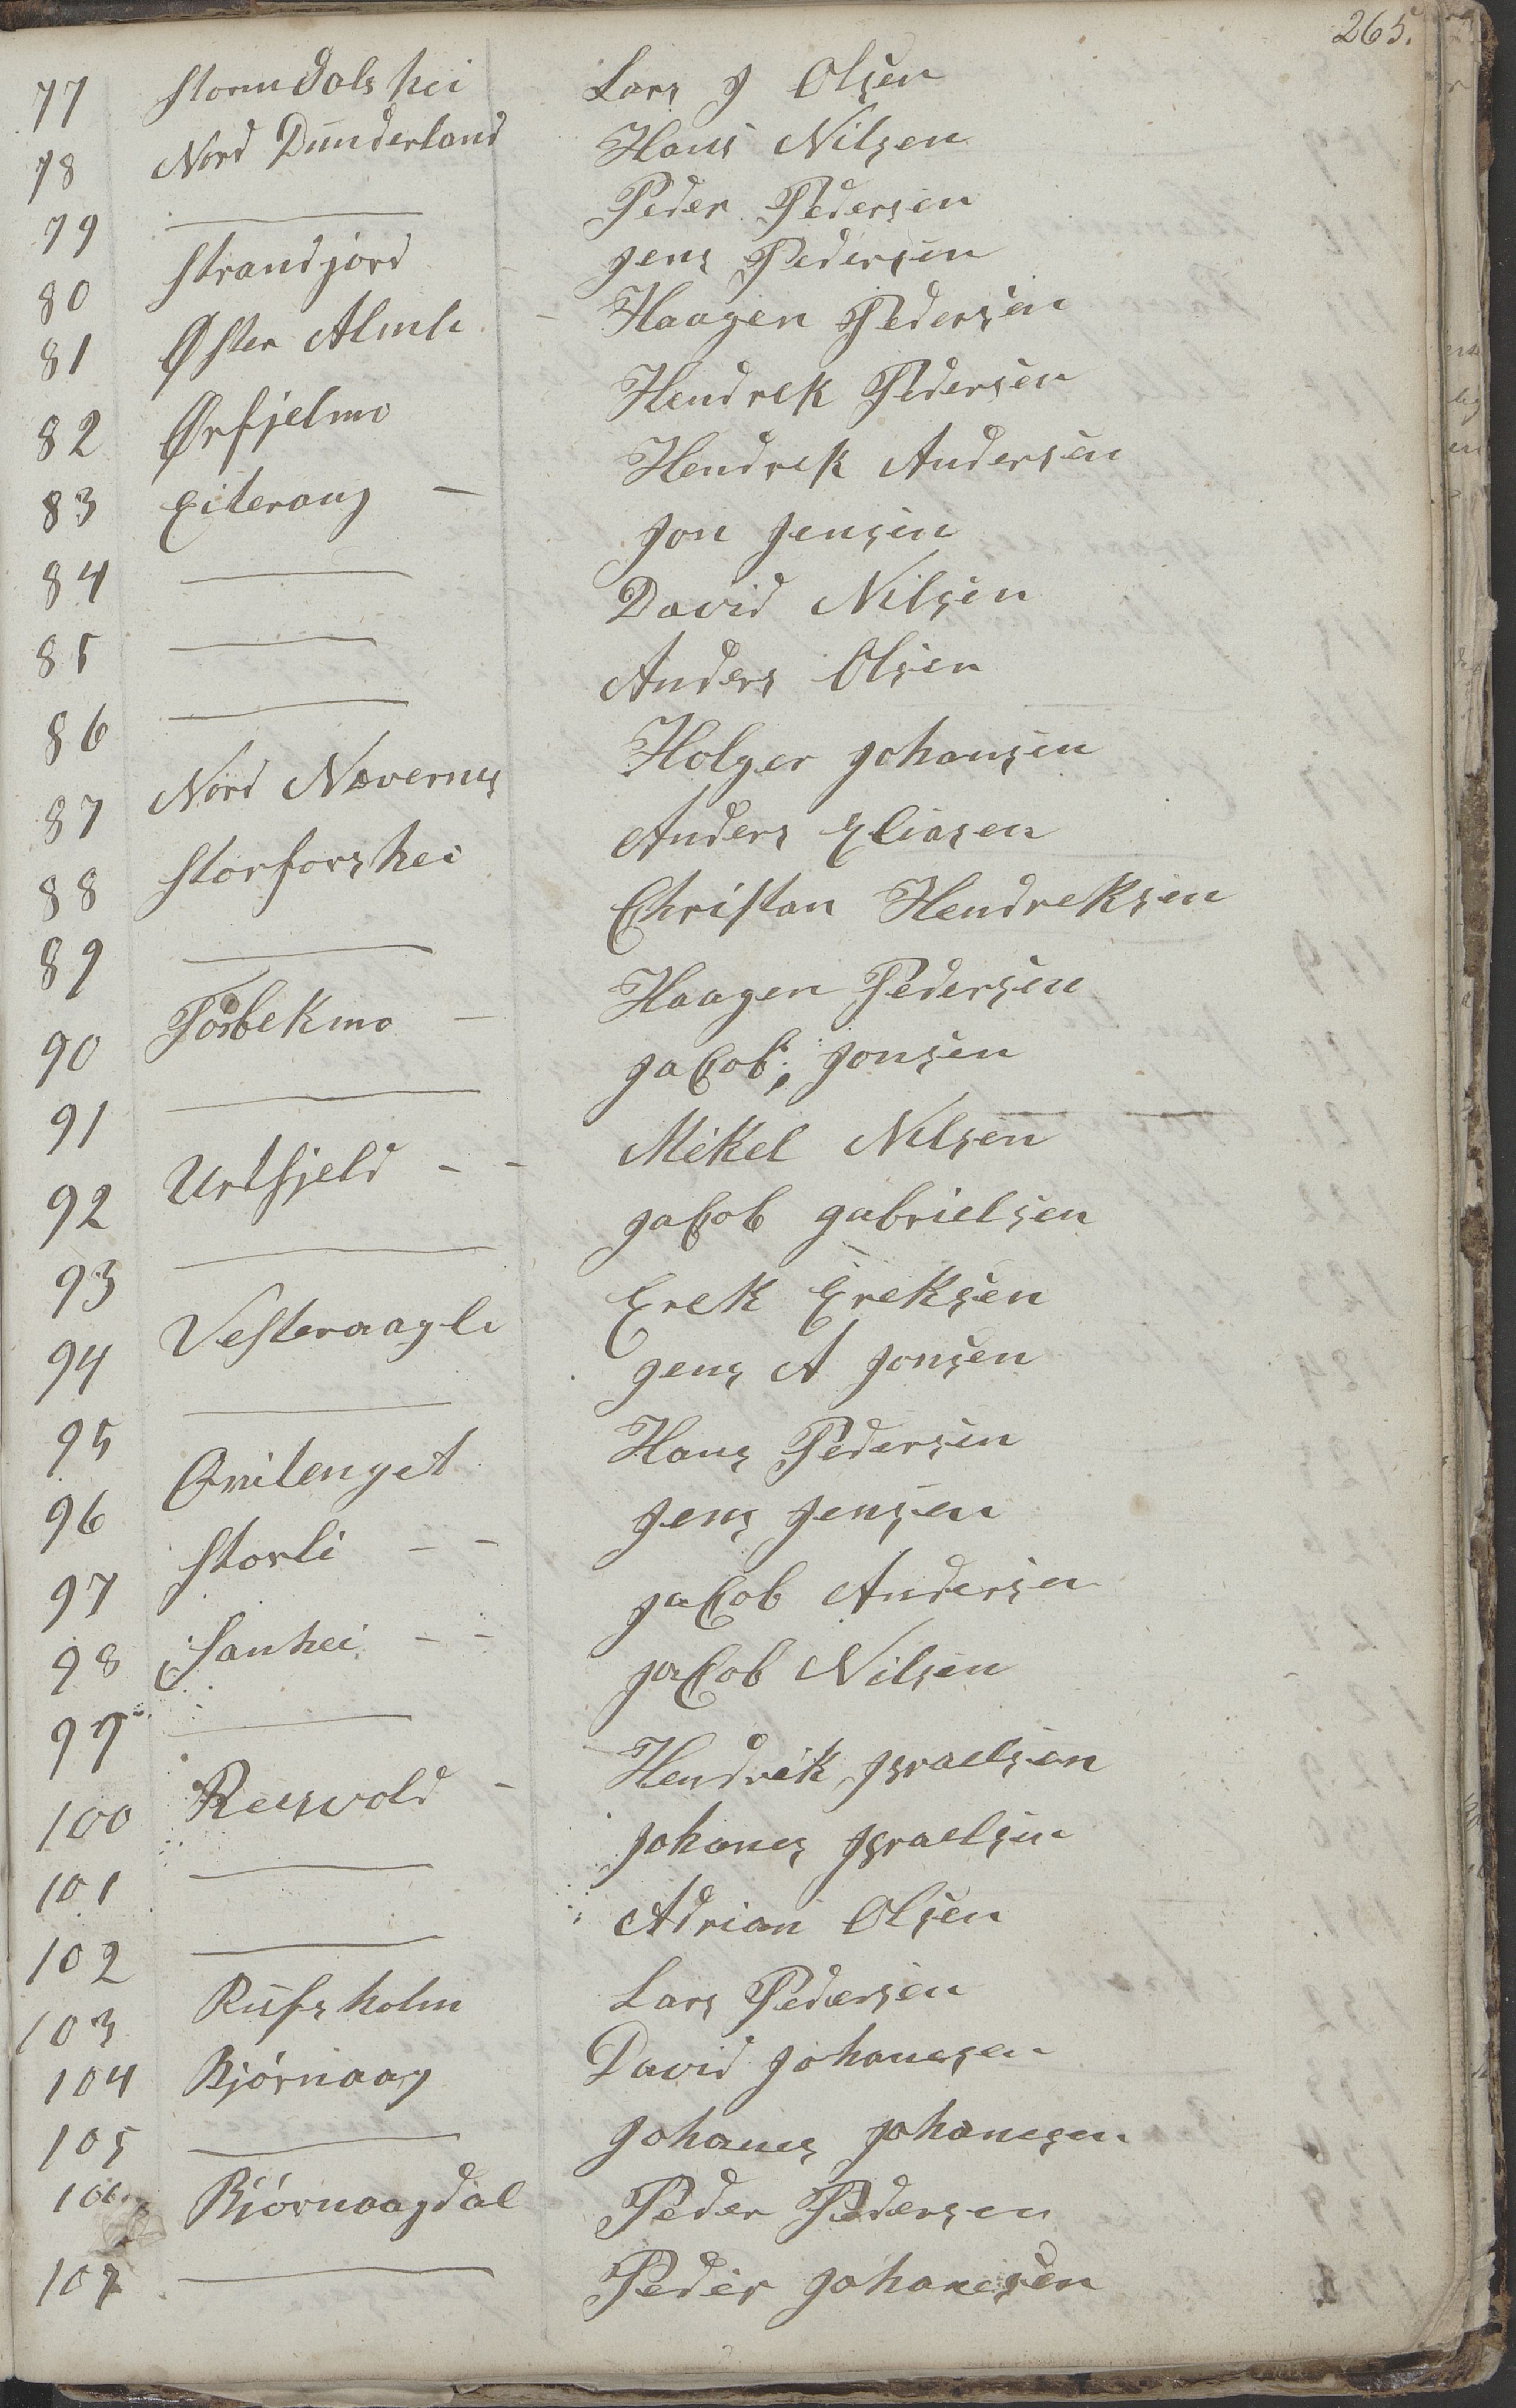 265.
77 Stormdalshei Lars J Olsen
78 Nord Dunderland Hans Nilsen
79 ——— Peder Pedersen
80 Strandjord Jens Pedersen
81 Øster Almli - Haagen Pedersen
82 Ørfjelmo Hendrek Pedersen
83 Eiteraag - Hendrek Andersen
84 ——— Jon Jensen
85 ——— David Nilsen
86 ——— Anders Olsen
87 Nord Nævernes Holger Johansen
88 Storforshei Anders Eliasen
89 ——— Christan Hendreksen
90 Tosbekmo - Haagen Pedersen
91 ——— Jacob Jonsen
92 Urtfjeld - - Mikel Nilsen
93 ——— Jacob Gabrielsen
94 Vesteraagli Erek Ereksen
95 ——— Jens A Jonsen
96 Qvitenget Hans Pedersen
97 Storli - - Jens Jensen
98 Sanhei - - Jacob Andersen
99 ——— Jacob Nilsen
100 Resvold - Hendrik Israelsen
101 ——— Johanes Israelsen
102 ——— Adrian Olsen
103 Rufsholm Lars Pedersen
104 Bjørnaag David Johanesen
105 ——— Johanes Johanesen
106 Bjørnaagdal Peder Pedersen
107 ——— Peder Johanesen